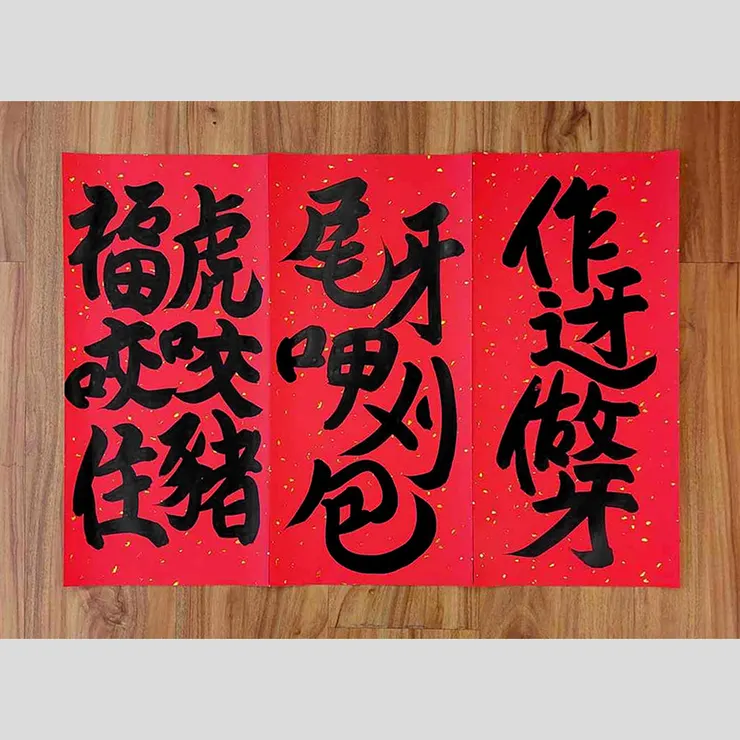 作迓做牙
尾牙呷刈包
虎咬豬
福咬住